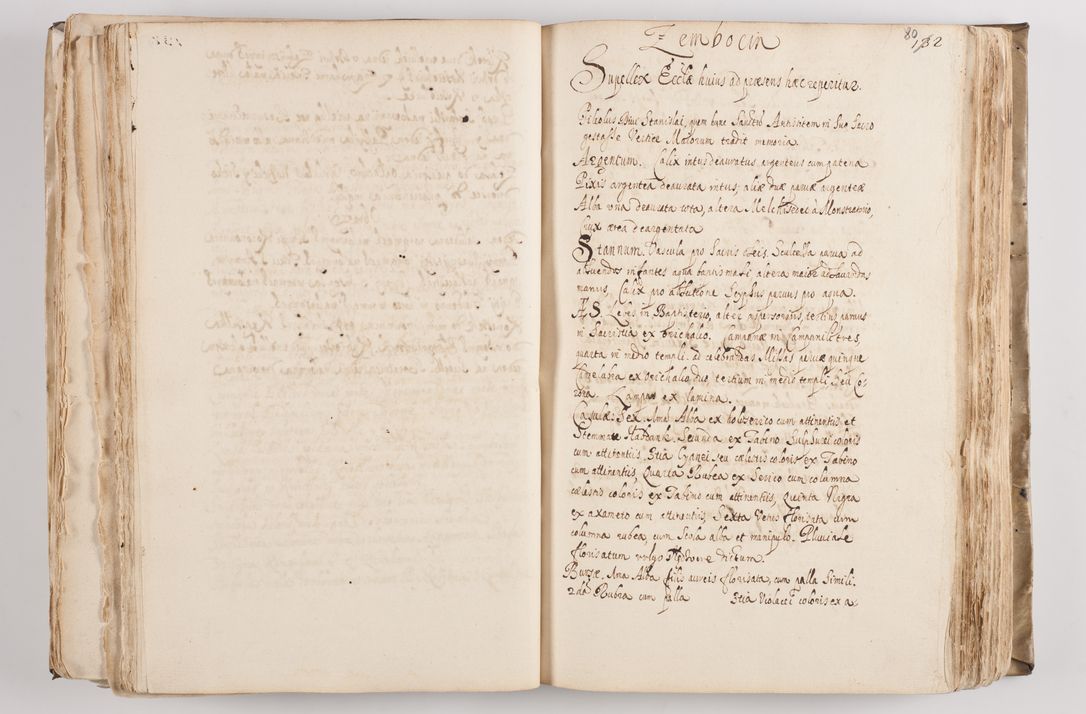 Zembocin
80
132
Supellex Eccłæ huius ad præsens hæc reperitur.
Pileolus Divi Stanislai, quem hunc Sanctū Antistitem in suo sacro
gestasse vertice Maiorum tradit memoria.
Argentum. Calix intus deauratus argenteus cum patena
Pixis argentea deaurata intus, aliæ duæ parvæ argenteæ
Alba una deaurata tota, altera Melchisedec à Monstratorio,
Crux ærea deargentata
Stannum. Vascula pro Sacris Oleis. Scutella parva ad
abluendos infantes aqua baptismali, altera maior ad lavandas
manus, Calix pro ablutione Scyphus parvus pro aqua.
Æs. Lebes in Baptisterio, alter aspersorius, tertius parvus
in Sacristia ex orichalco. Campanæ in Campanili tres,
quarta in medio templi. ad celebrandas Missas pelves quinque
Candelabra ex orichalco duo, tertium in medio templi seu Co-
rona. Lampas ex lamina.
Casulæ Sex. Una Alba ex holoserico cum attinentiis et
Stemmate Secunda ex Tabino Sulphurei coloris
cum attinentiis, 3tia Cyanei seu cælestis coloris ex Tabino
cum attinentiis, Quarta Rubea ex Serico cum columna
cælestis coloris ex Tabino cum attinentiis, Quinta Nigra
ex axameto cum attinentiis, Sexta Vetus florisata cum
columna rubea, cum Stola alba et manipulo. Pluviale
florisatum vulgo dictum.
Bursæ. Una Alba filis aureis florisata, cum palla simili.
2da Rubra cum palla 3tia Violacei coloris ex a-